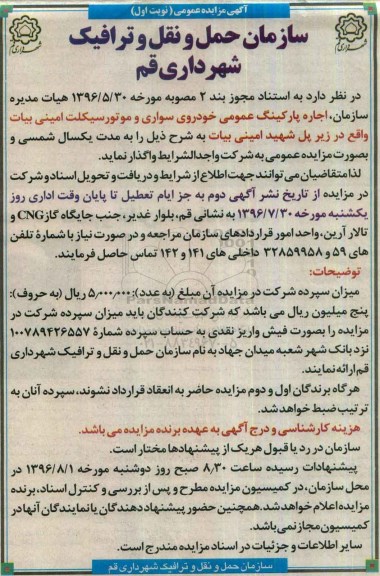 آگهی مزایده عمومی (نوبت اول)
سازمان حمل و نقل و ترافیک
شهرداری قم
در نظر دارد به استناد مجوز بند ۲ مصوبه مورخه ۱۳۹۶/۵/۳۰ هیات مدیره
سازمان، اجاره پارکینگ عمومی خودروی سواری و موتورسیکلت امینی بیات
واقع در زیر پل شهید امینی بیات به شرح ذیل را به مدت یکسال شمسی و
بصورت مزایده عمومی به شرکت واجدالشرایط واگذار نماید.
لذا متقاضیان می توانند جهت اطلاع از شرایط و دریافت و تحویل اسناد و شرکت
در مزایده از تاریخ نشر آگهی دوم به جز ایام تعطیل تا پایان وقت اداری روز
یکشنبه مورخه ۱۳۹۶/۷/۳۰ به نشانی قم، بلوار غدیر، جنب جایگاه گاز CNG و
تالار آرین، واحد امور قراردادهای سازمان مراجعه و در صورت نیاز با شماره تلفن
های ۵۹ و ۳۲۸۵۹۹۵۸ داخلی های ۱۴۱ و ۱۴۲ تماس حاصل فرمایند.
توضیحات:
میزان سپرده شرکت در مزایده آن مبلغ (به عدد): ۵/۰۰۰/۰۰۰ ریال (به حروف):
پنج میلیون ریال می باشد که شرکت کنندگان باید میزان سپرده شرکت در
مزایده را بصورت فیش واریز نقدی به حساب سپرده شمارهٔ ۱۰۰۷۸۹۴۲۶۵۵۷
نزد بانک شهر شعبه میدان جهاد به نام سازمان حمل و نقل و ترافیک شهرداری
قم ارائه نمایند.
هر گاه برندگان اول و دوم مزایده حاضر به انعقاد قرارداد نشوند، سپرده آنان به
ترتیب ضبط خواهد شد.
هزینه کارشناسی و درج آگهی به عهده برنده مزایده می باشد.
سازمان در رد یا قبول هر یک از پیشنهادها مختار است.
پیشنهادات رسیده ساعت ۸/۳۰ صبح روز دوشنبه مورخه ۱۳۹۶/۸/۱ در
محل سازمان، در کمیسیون مزایده مطرح و پس از بررسی و کنترل اسناد، برنده
مزایده اعلام خواهد شد. همچنین حضور پیشنهاد دهندگان یا نمایندگان آنها در
کمیسیون مجاز نمی باشد.
سایر اطلاعات و جزئیات در اسناد مزایده مندرج است.
سازمان حمل و نقل و ترافیک شهرداری قم